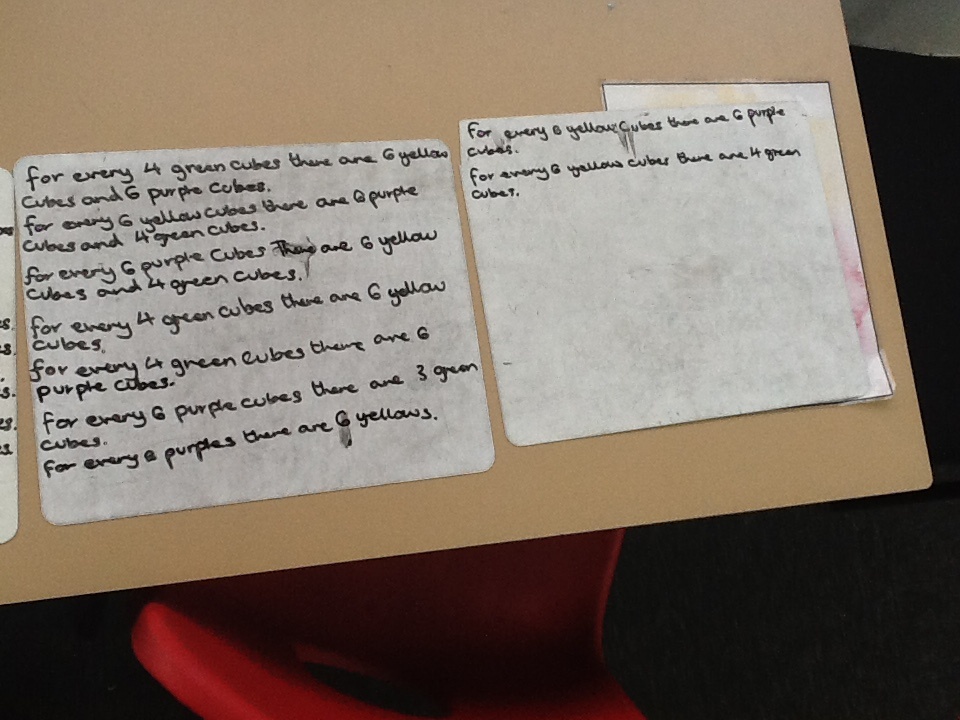 for every 4 green cubes there are 6 yellow
cubes and 6 purple cubes.
for every 6 yellow cubes there are 6 purple
cubes and 4 green cubes.
for every 6 purple cubes There are 6 yellow
cubes and 4 green cubes.
for every 4 green cubes there are 6 yellow
cubes.
for every 4 green cubes there are 6
purple cubes.
for every 6 purple cubes there are 3 green
cubes.
for every purples there are 6 yellows.
for every 6 yellow cubes there are 6 purple
cubes.
for every 6 yellow cubes there are 4 green
cubes.